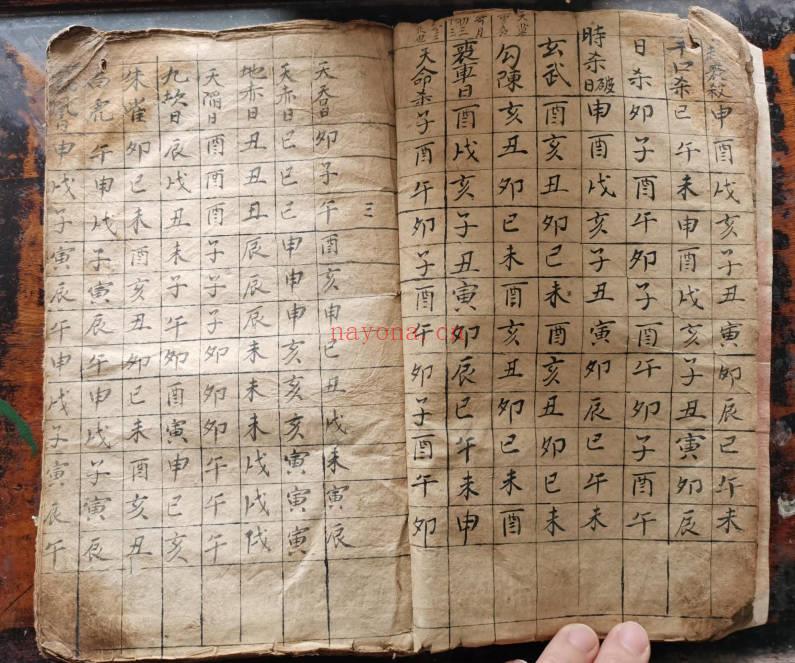 殺申酉戌亥子丑寅卯辰巳午未
口杀巳午未申酉戌亥子丑寅卯辰
日杀卯子酉午卯子酉午卯子酉午
時杀破日申酉戌亥子丑寅卯辰巳午未
玄武酉亥丑卯巳未酉亥丑卯巳未
勾陳亥丑卯巳未酉亥丑卯巳未酉
喪車日酉戌亥子丑寅卯辰巳午未申
天命杀子酉午卯子酉午卯子酉午卯
三
天吞日卯子午酉亥申巳丑戌未寅辰
天赤日巳巳巳申申申亥亥亥寅寅寅
地赤日丑丑丑辰辰辰未未未戌戌戌
天陷日酉酉酉子子子卯卯卯午午午
九坎日辰戌丑未子午卯酉寅申巳亥
朱雀卯巳未酉亥丑卯巳未酉亥丑
白虎午申戌子寅辰午申戌子寅辰
申戌子寅辰午申戌子寅辰午